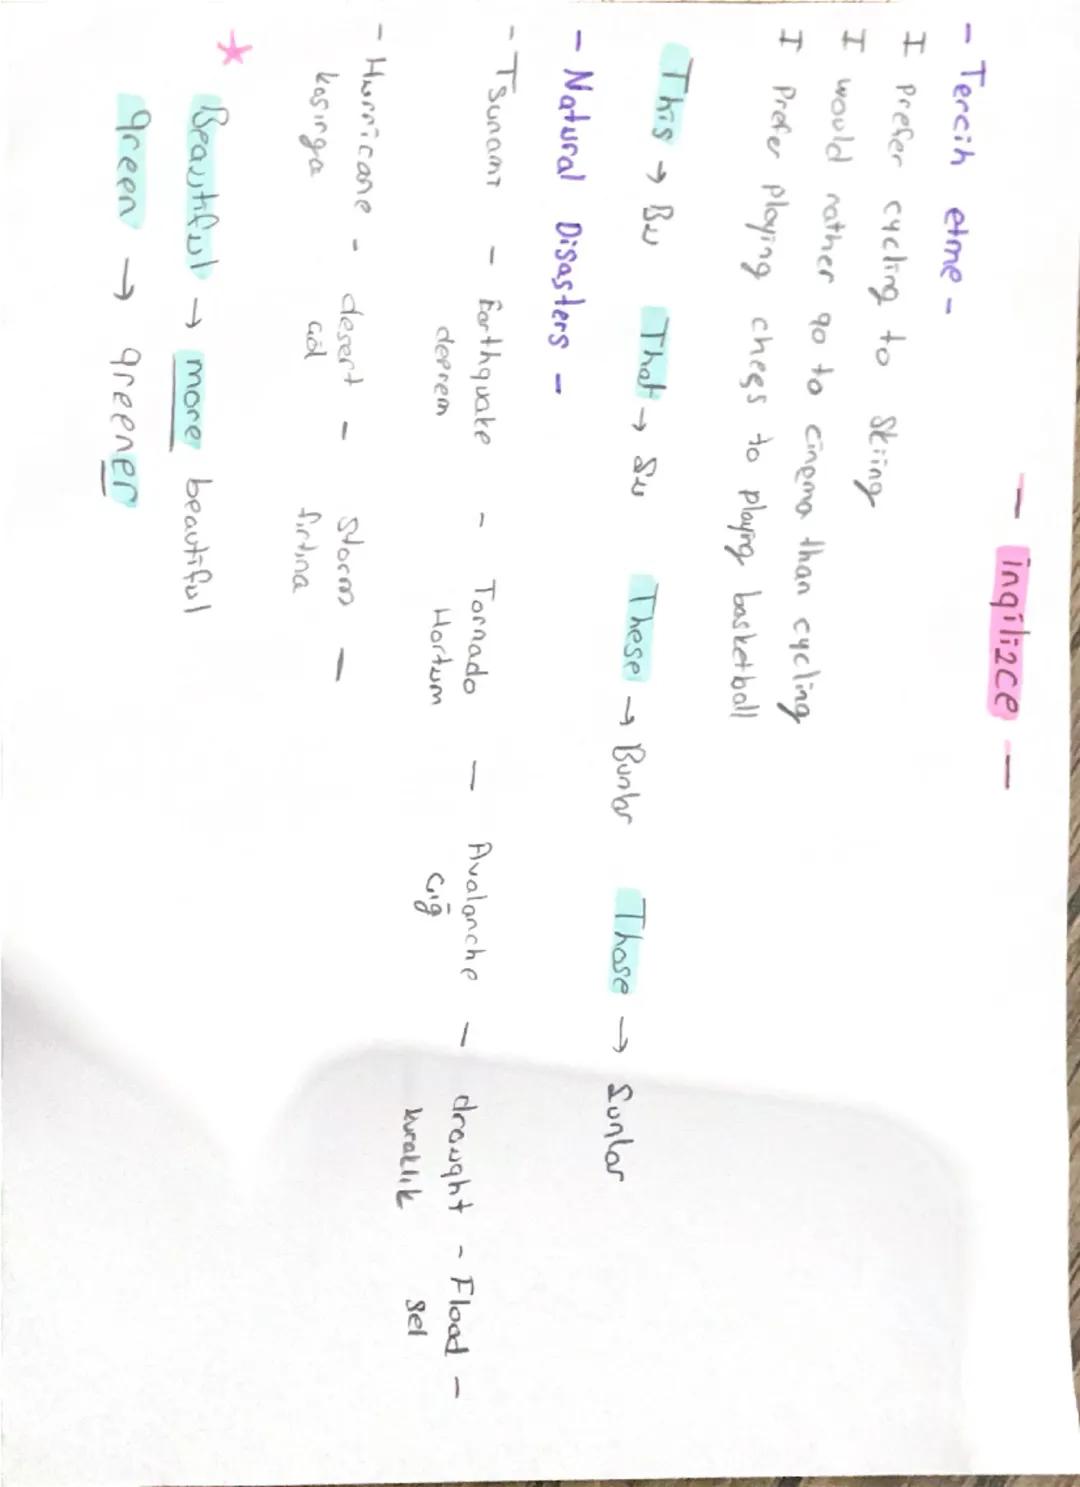 - ingilizce -
- Tercih etme -
I prefer cycling to skiing
I would rather go to cinema than cycling
I prefer playing chess to playing basketball
This → Bu That → Şu These → Bunlar Those → Şunlar
- Natural Disasters -
- Tsunami - Earthquake - Tornado - Avalanche - drought - Flood -
deprem Hortum Çığ kuraklık sel
- Hurricane - desert - Storm -
kasırga çöl fırtına
Beautiful → more beautiful
green → greener